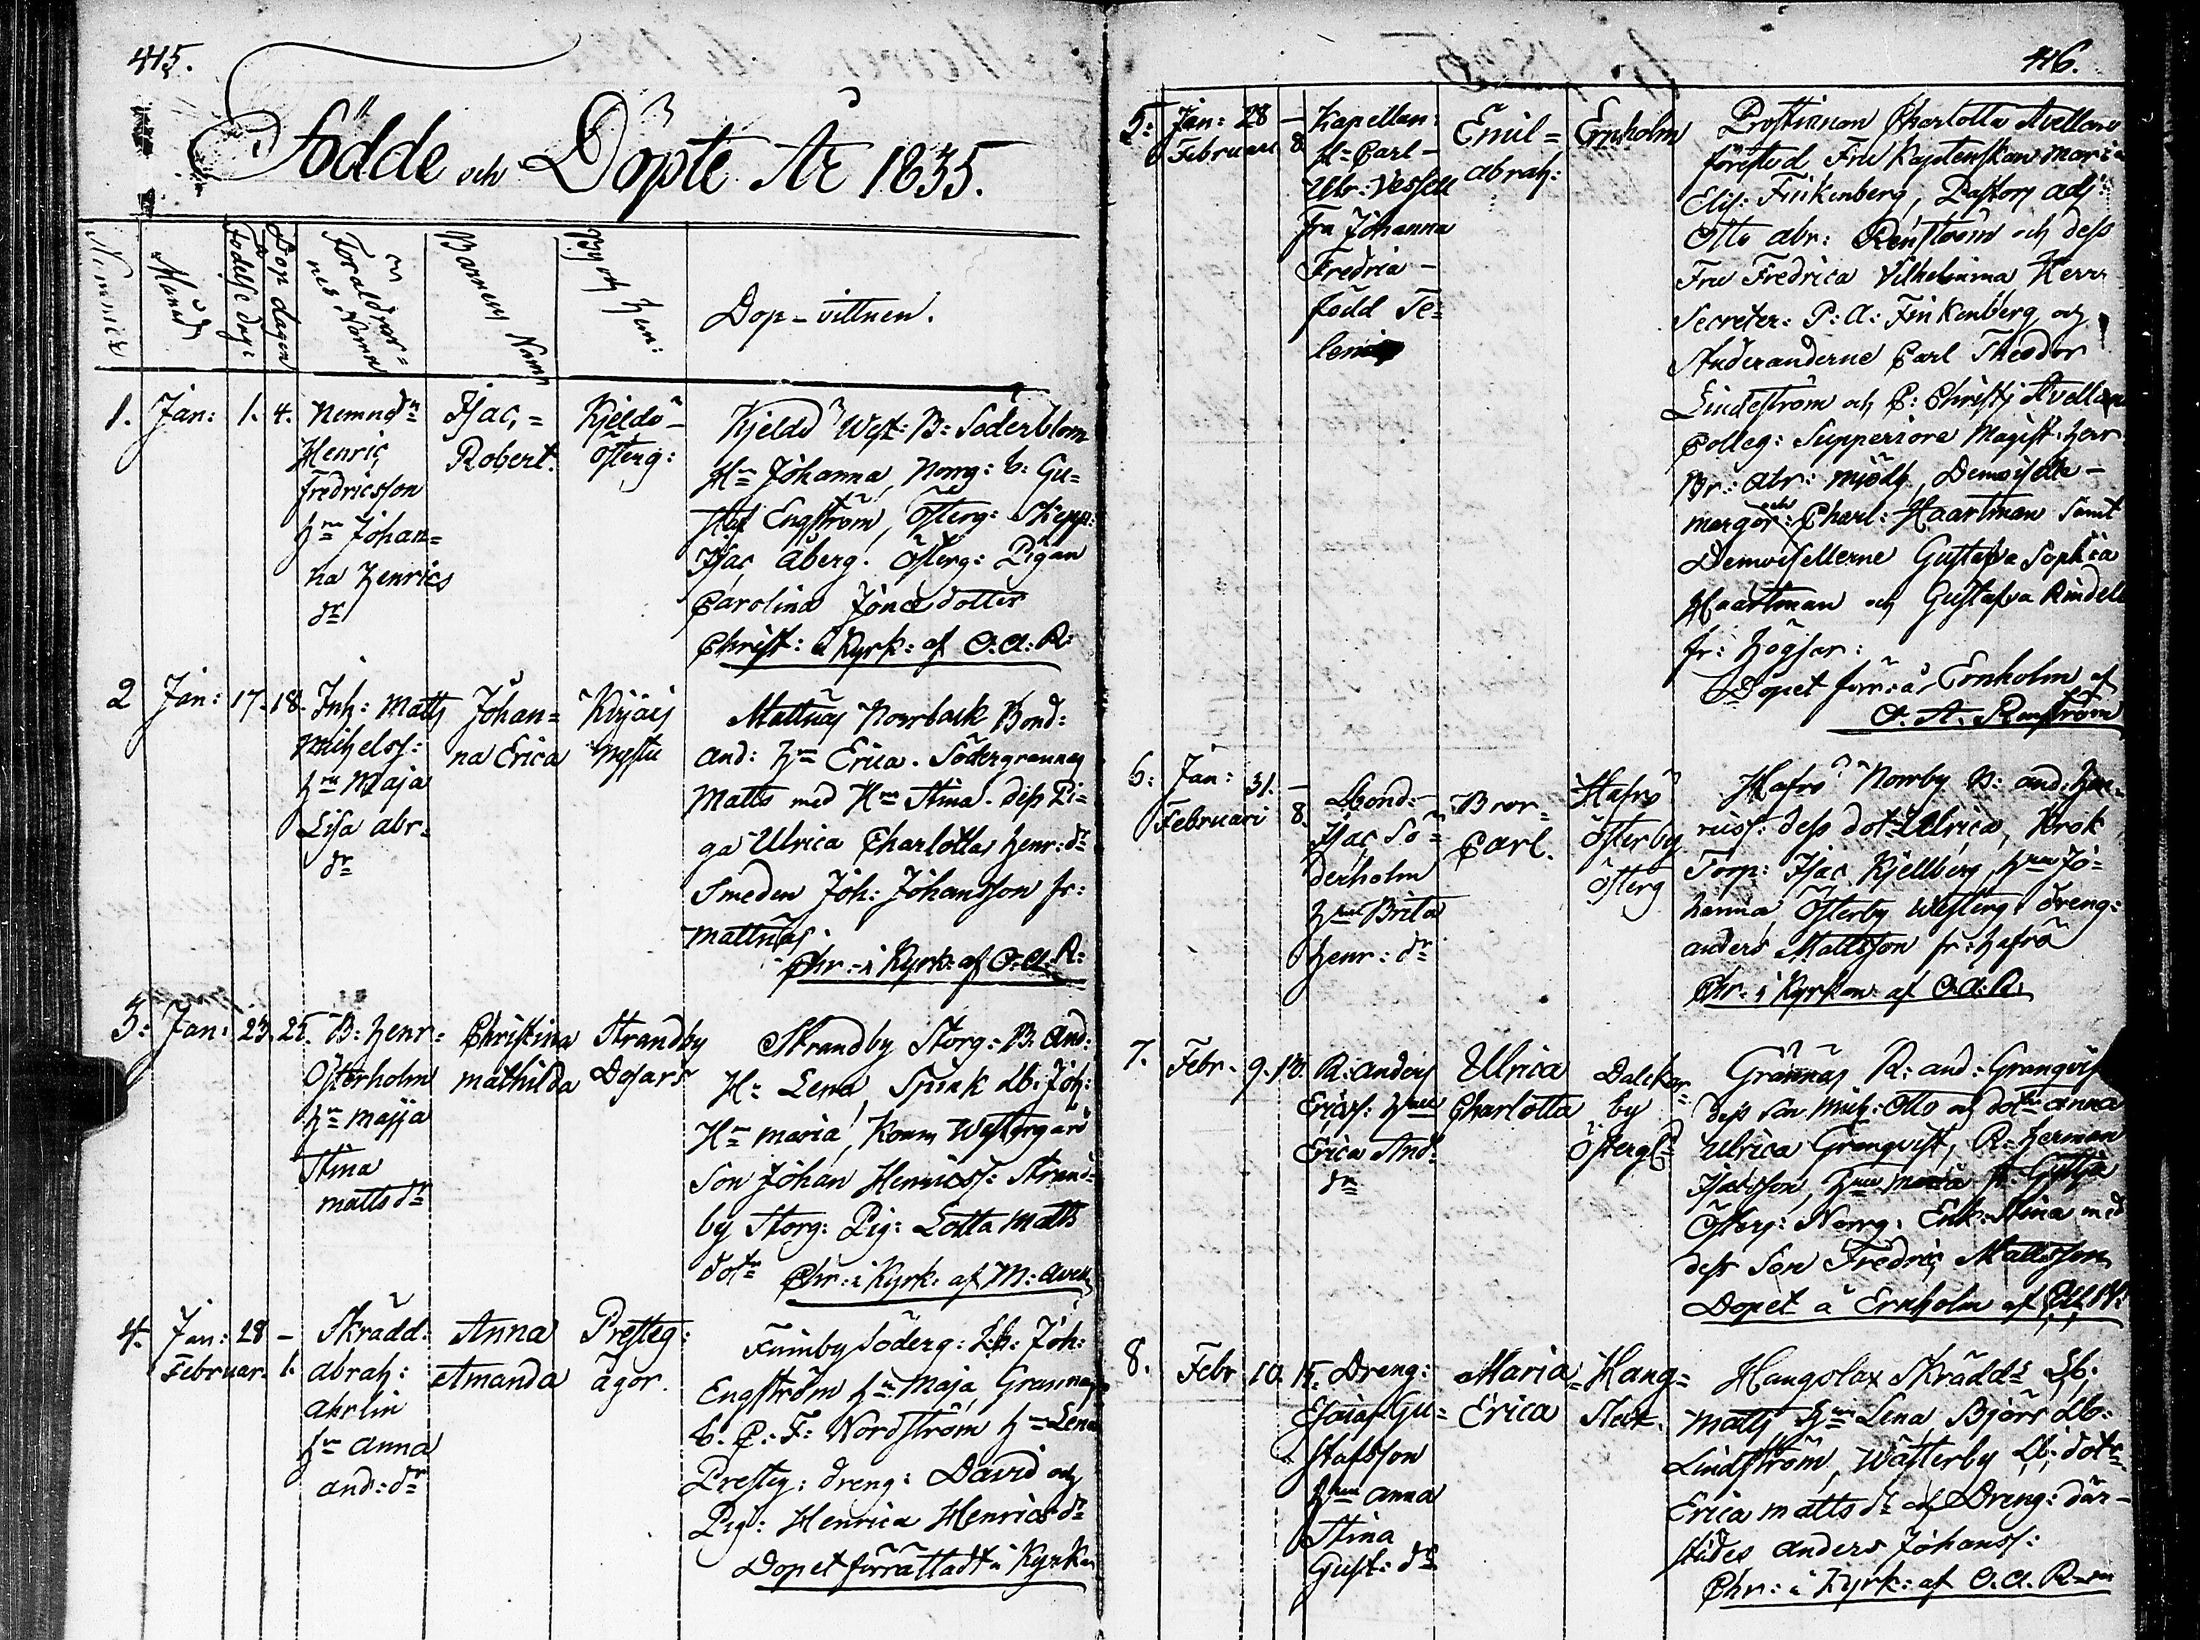 415.
Födde och Döpte År 1835.
Nummer
Månad
Födelse dag:
Dop dagen
Föräldrar=
nes Namn
Barnens Namn
By och Hem:
Dop-vittnen.
1. Jan: 1. 4.
Nemnd:n
Henric
Fredricsson
h:n Johan=
na Henrics
d:r
Isac,=
Robert.
Kjeldö
Österg:
Kjeldö West: B: Söderblom
H:n Johanna, Norrg: b: Gu=
staf Engström, Österg: Skepp:
Isac Åberg. Österg: Pigan
Carolina Jonædotter
Christ: i Kyrk: af O.A.R:
2 Jan: 17. 18.
Inh: Matts
Michelss:
h:n Maja
Lisa Abr:
d:r
Johan=
na Erica
Kirjais
Nystu
Mattnäs Norrback Bond:
And: h:n Erica. Södergrannas
Matts med H:n Stina. dess Pi=
ga Ulrica Charlotta Henr:d:r
Smeden Joh: Johansson fr:
Mattnäs
Chr: i Kyrk: af O.A.R:
3: Jan: 23. 25.
B: Henr=
Österholm
h:n Majja
Stina
Matts d:r
Christina
Mathilda
Strandby
Dosars
Strandby Storg: B. And:
H: Lena, Spink Lb: Joh:
H:n Maria, Komm Westergård
Son Johan Henricss: Strand=
by Storg: Pig: Lotta Matts
dot:r Chr: i Kyrk: af M: Avell
4. Jan: 28 –
Februar. 1.
Skrädd:
Abrah:
Ahrlin
h:n Anna
And: d:r
Anna
Amanda
Presteg:
ägor.
Finnby Söderg: Lb: Joh:
Engström h:n Maja, Grannas
b. C: F: Nordström h:n Lena
Presteg: dreng: David och
Pig: Henrica Henricsd:r
Dopet förrättadt i Kyrkan
416.
5: Jan: 28 –
Februari 8
Kapellan:
H: Carl–
Ubr: Vessell
Fru Johanna
Fredrica–
född Te=
len
Emil=
Abrah:
Ernholm
Prostinnan Charlotta Avellan
förestod Fru Kaptenskan Maria
Elis: Finkenberg, Pastors adj:
Otto Abr: Renström och dess
Fru Fredrica Vilhelmina Herr
Secreter: P: A: Finkenberg och
Studeranderne Carl Theodor
Lindeström och C: Christ: Avellan
Colleg: Supperiore Magist. Herr
Br: Abr: Mjödh, Demoiselle–
Margar: och Charl: Haartman samt
Demoisellerne Gustafva Sophia
Haartman och Gustafva Rindell
fr: Högsar:
Dopet förr: å Ernholm af
O. A. Renström
6: Jan: 31. –
Februari 8.
Bond:
Isac Sö=
derholm
h:n Brita
Henr: d:r
Bror=
Carl.
Hafrö
Österby
Österg
Hafrö Norrby B: And: Hen=
ricss: dess dot: Ulrica, Krok
Torp: Isac Kjellberg, h:n Jo=
hanna, Österby Westerg dreng:
Anders Mattsson fr: Hafrö
Chr: i Kyrkan af O.A.R.
7. Febr. 9. 13.
R: Anders
Ericss: h:n
Erica And:
d:r
Ulrica
Charlotta
Dalckar=
by
Östergl:
Grännäs R: And: Granqvist
dess Son Mich: Otto och dot:n Anna
Ulrica Granqvist, R: Herman
Isacsson, h:n Maria fr: Gyttja
Österg: Norrg: Enk: Stina med
dess Son Fredric Mattsson
Dopet å Ernholm af
8. Febr 10. 15.
Dreng:
Esaias Gu=
stafsson
h:n Anna
Stina
Gust: d:r
Maria=
Erica
Hang=
Slätt.
Hangslax Skrädd: Lb:
Matts h:n Lena Björs Lb:
Lindström, Wästerby Lb: dot:
Erica Matts d:r och Dreng: där–
städes Anders Johanss:
Chr: i Kyrk: af O.A.R–m